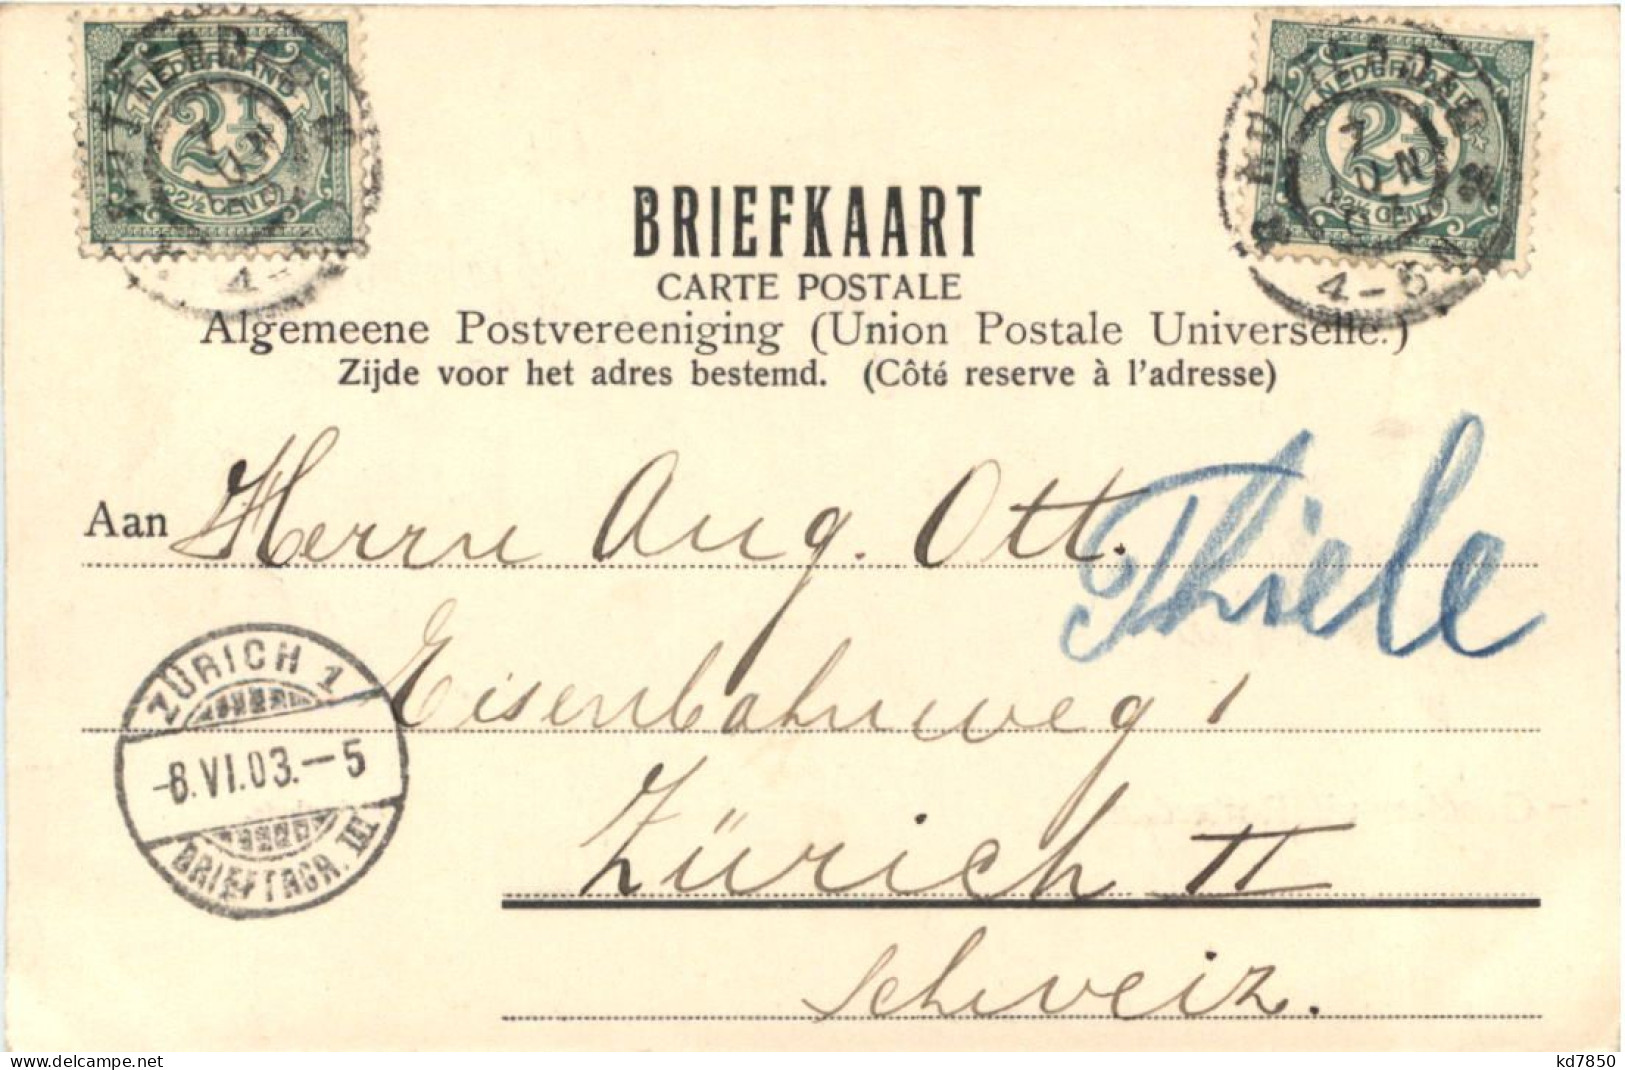 NEDERLAND
2½
2½ CENT
4-
ROTTERDAM
NEDERLAND
2½
7 JUN
2½ CENT
4-5 N
BRIEFKAART
CARTE POSTALE
Algemeene Postvereeniging (Union Postale Universelle.)
Zijde voor het adres bestemd. (Côté reserve à l'adresse)
Aan Herrn Aug. Ott.
Thiele
Eisenbahnweg 1
Zürich II
Schweiz.
ZÜRICH 1
-8.VI.03.-5
BRIEFTRGR. III
delcampe.net
kd7850